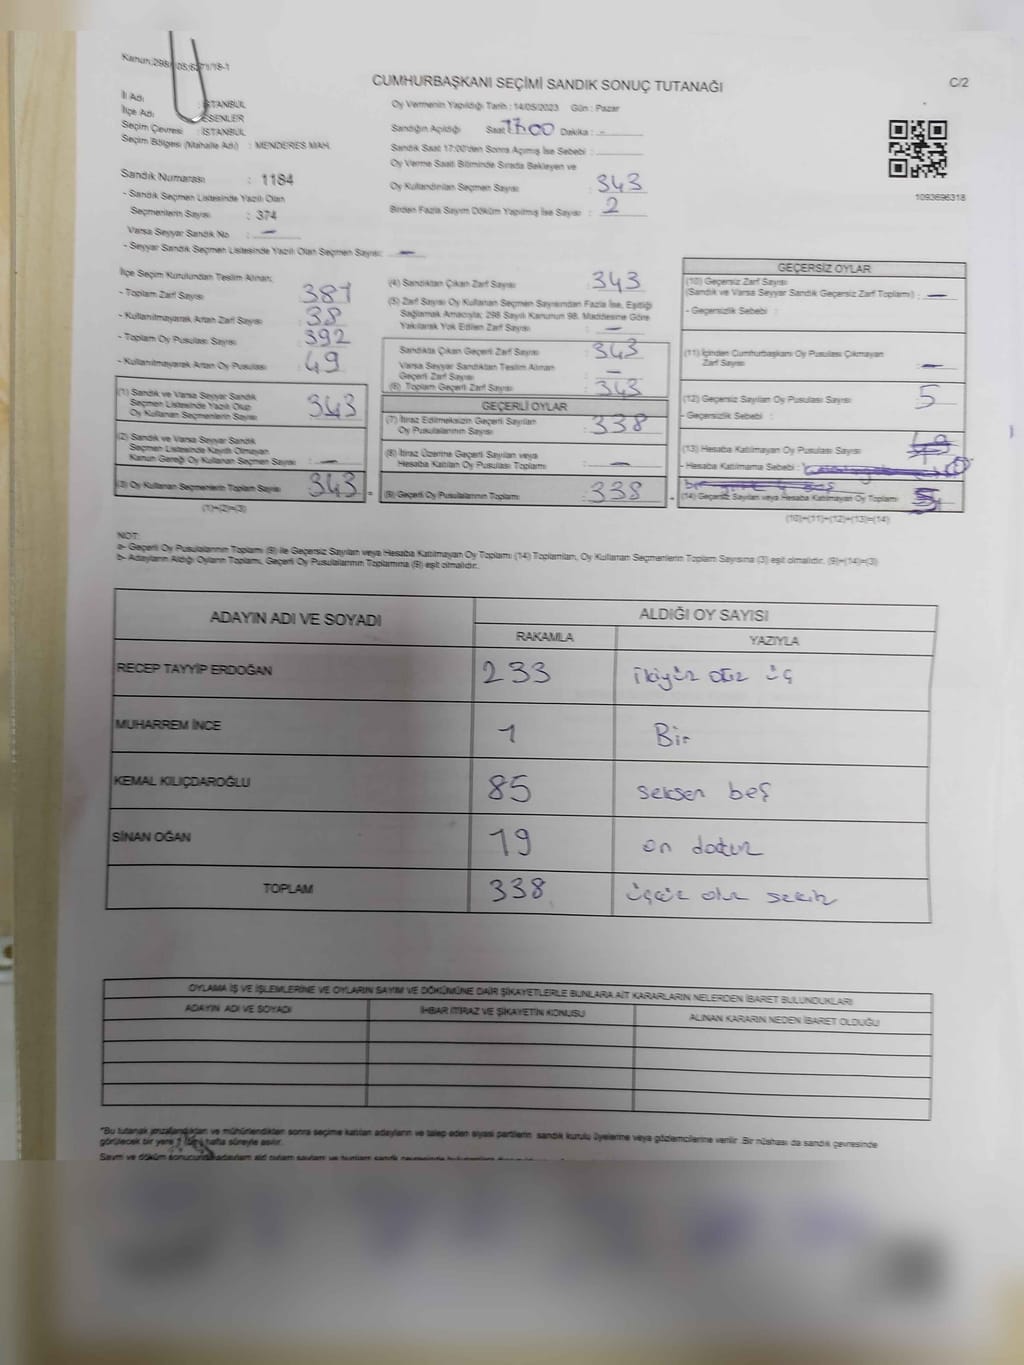 Kanun:298/
CUMHURBAŞKANI SEÇİMİ SANDIK SONUÇ TUTANAĞI
C/2
İl Adı : İSTANBUL
İlçe Adı : ESENLER
Seçim Çevresi : İSTANBUL
Seçim Bölgesi (Mahalle Adı) : MENDERES MAH.
Oy Vermenin Yapıldığı Tarih : 14/05/2023 Gün : Pazar
Sandığın Açıldığı Saat 17:00 Dakika : -
Sandık Saat 17:00'den Sonra Açılmış İse Sebebi :
Oy Verme Saati Bitiminde Sırada Bekleyen ve
Oy Kullandırılan Seçmen Sayısı : 343
Birden Fazla Sayım Döküm Yapılmış İse Sayısı : 2
1093696318
Sandık Numarası : 1184
- Sandık Seçmen Listesinde Yazılı Olan
Seçmenlerin Sayısı : 374
Varsa Seyyar Sandık No : -
- Seyyar Sandık Seçmen Listesinde Yazılı Olan Seçmen Sayısı : -
İlçe Seçim Kurulundan Teslim Alınan:
- Toplam Zarf Sayısı : 381
- Kullanılmayarak Artan Zarf Sayısı : 38
- Toplam Oy Pusulası Sayısı : 392
- Kullanılmayarak Artan Oy Pusulası : 49
(1) Sandık ve Varsa Seyyar Sandık
Seçmen Listesinde Yazılı Olup
Oy Kullanan Seçmenlerin Sayısı : 343
(2) Sandık ve Varsa Seyyar Sandık
Seçmen Listesinde Kayıtlı Olmayan
Kanun Gereği Oy Kullanan Seçmen Sayısı : -
(3) Oy Kullanan Seçmenlerin Toplam Sayısı : 343
(1)+(2)=(3)
(4) Sandıktan Çıkan Zarf Sayısı : 343
(5) Zarf Sayısı Oy Kullanan Seçmen Sayısından Fazla İse, Eşitliği
Sağlamak Amacıyla; 298 Sayılı Kanunun 98. Maddesine Göre
Yakılarak Yok Edilen Zarf Sayısı : -
Sandıkta Çıkan Geçerli Zarf Sayısı : 343
Varsa Seyyar Sandıktan Teslim Alınan
Geçerli Zarf Sayısı : -
(6) Toplam Geçerli Zarf Sayısı : 343
GEÇERLİ OYLAR
(7) İtiraz Edilmeksizin Geçerli Sayılan
Oy Pusulalarının Sayısı : 338
(8) İtiraz Üzerine Geçerli Sayılan veya
Hesaba Katılan Oy Pusulası Toplamı : -
(9) Geçerli Oy Pusulalarının Toplamı : 338
GEÇERSİZ OYLAR
(10) Geçersiz Zarf Sayısı
(Sandık ve Varsa Seyyar Sandık Geçersiz Zarf Toplamı) : -
- Geçersizlik Sebebi :
(11) İçinden Cumhurbaşkanı Oy Pusulası Çıkmayan
Zarf Sayısı : -
(12) Geçersiz Sayılan Oy Pusulası Sayısı : 5
- Geçersizlik Sebebi :
(13) Hesaba Katılmayan Oy Pusulası Sayısı :
- Hesaba Katılmama Sebebi :
(14) Geçersiz Sayılan veya Hesaba Katılmayan Oy Toplamı : 5
(10)+(11)+(12)+(13)=(14)
NOT:
a- Geçerli Oy Pusulalarının Toplamı (9) ile Geçersiz Sayılan veya Hesaba Katılmayan Oy Toplamı (14) Toplamları, Oy Kullanan Seçmenlerin Toplam Sayısına (3) eşit olmalıdır. (9)+(14)=(3)
b- Adayların Aldığı Oyların Toplamı, Geçerli Oy Pusulalarının Toplamına (9) eşit olmalıdır.
ADAYIN ADI VE SOYADI ALDIĞI OY SAYISI
RAKAMLA YAZIYLA
RECEP TAYYİP ERDOĞAN 233 ikiyüz otuz üç
MUHARREM İNCE 1 Bir
KEMAL KILIÇDAROĞLU 85 seksen beş
SİNAN OĞAN 19 on dokuz
TOPLAM 338 üçyüz otuz sekiz
OYLAMA İŞ VE İŞLEMLERİNE VE OYLARIN SAYIM VE DÖKÜMÜNE DAİR ŞİKAYETLERLE BUNLARA AİT KARARLARIN NELERDEN İBARET BULUNDUKLARI
ADAYIN ADI VE SOYADI İHBAR İTİRAZ VE ŞİKAYETİN KONUSU ALINAN KARARIN NEDEN İBARET OLDUĞU
*Bu tutanak imzalandıktan ve mühürlendikten sonra seçime katılan adayların ve talep eden siyasi partilerin sandık kurulu üyelerine veya gözlemcilerine verilir. Bir nüshası da sandık çevresinde
görülecek bir yere hafta süreyle asılır.
Sayım ve döküm sonucunda